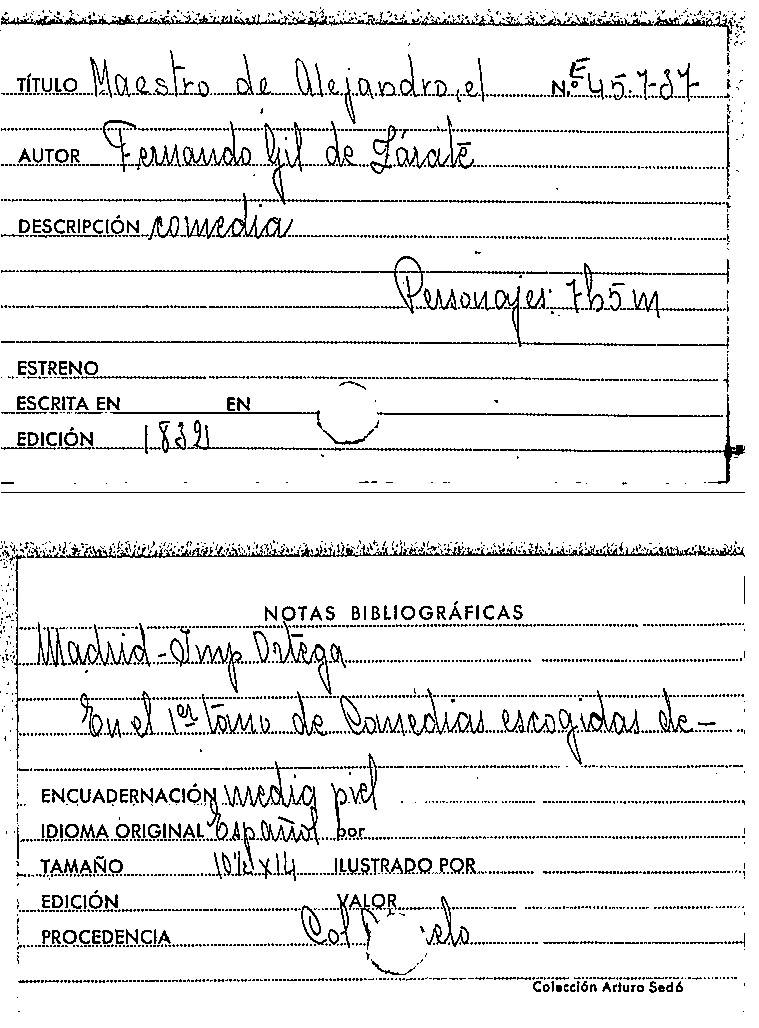 TÍTULO Maestro de Alejandro, el N.º E 457-37
AUTOR Fernando Gil de Zárate
DESCRIPCIÓN comedia
Personajes: 7h 5m
ESTRENO
ESCRITA EN EN
EDICIÓN 1832
NOTAS BIBLIOGRÁFICAS
Madrid - Imp Ortega
En el 1er tomo de Comedias escogidas de -
ENCUADERNACIÓN media piel
IDIOMA ORIGINAL Español por
TAMAÑO ILUSTRADO POR
EDICIÓN VALOR
PROCEDENCIA Col
Colección Arturo Sedó